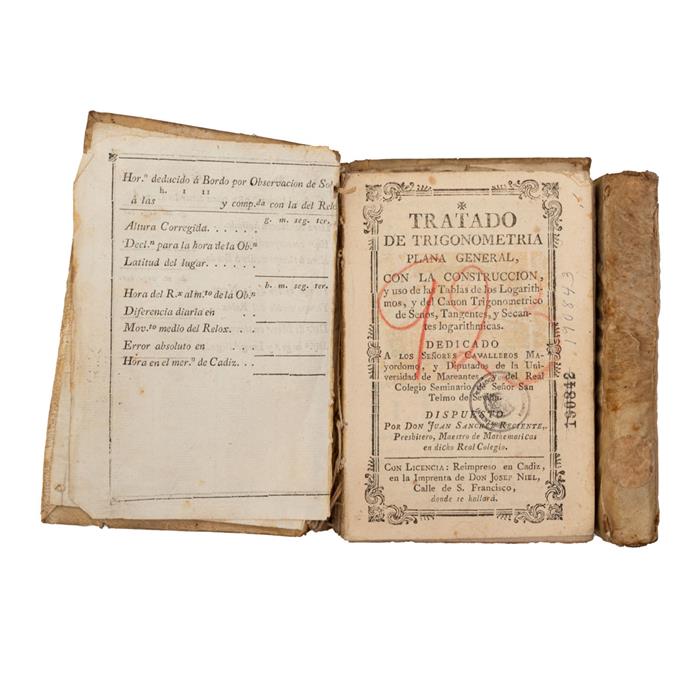 Hor.ⁿ deducido á Bordo por Observacion de Sol
h. ı ıı
á las y comp.da con la del Relo
g. m. seg. ter.
Altura Corregida. . . . . .
Decl.ⁿ para la hora de la Ob.ⁿ
Latitud del lugar. . . . . .
h. m. seg. ter.
Hora del R.x al m.to de la Ob.ⁿ
Diferencia diaria en . . . .
Mov.to medio del Relox. . . .
Error absoluto en . . .
Hora en el mer.º de Cadiz. . .
TRATADO
DE TRIGONOMETRIA
PLANA GENERAL,
CON LA CONSTRUCCION,
y uso de las Tablas de los Logarith-
mos, y del Canon Trigonometrico
de Senos, Tangentes, y Secan-
tes logarithmicas.
DEDICADO
A LOS SEÑORES CAVALLEROS MA-
yordomo, y Diputados de la Uni-
versidad de Mareantes, y del Real
Colegio Seminario de Señor San
Telmo de Sevilla.
DISPUESTO
POR DON JUAN SANCHEZ RECIENTE,
Presbitero, Maestro de Mathematicas
en dicho Real Colegio.
CON LICENCIA: Reimpreso en Cadiz,
en la Imprenta de DON JOSEP NIEL,
Calle de S. Francisco,
donde se hallará.
190843
190842